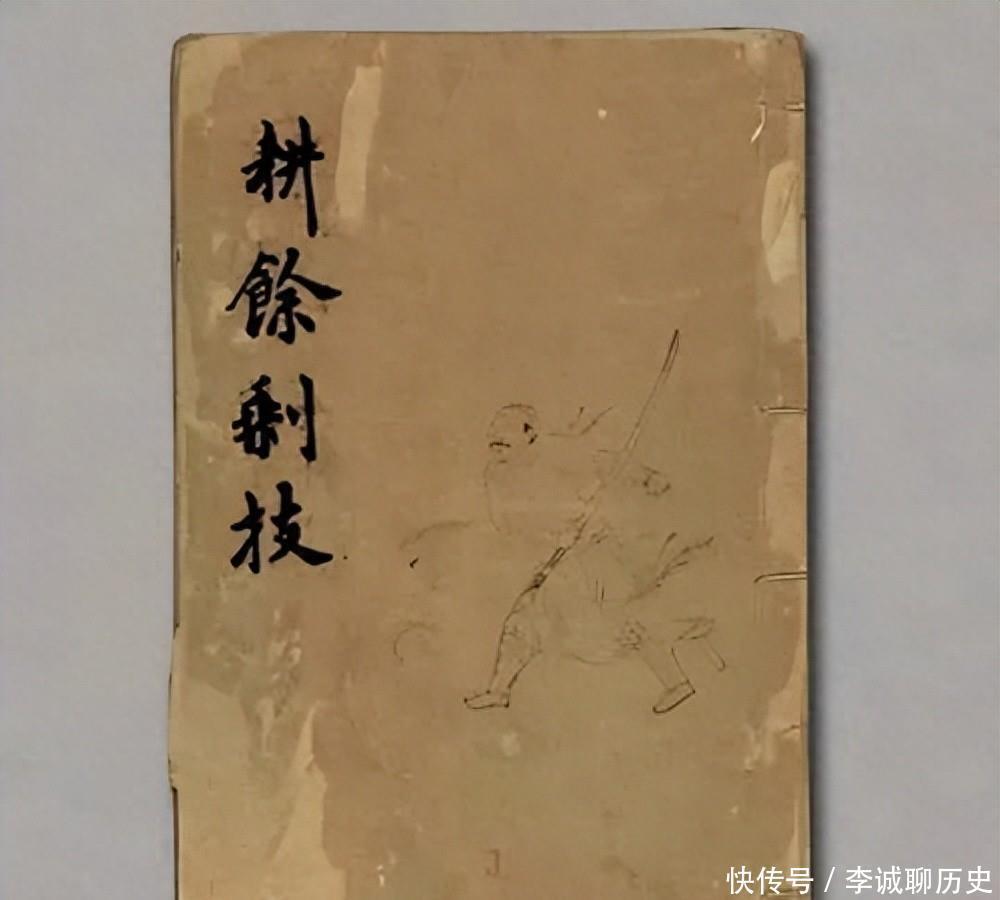 耕餘剩技
快传号 / 李诚聊历史